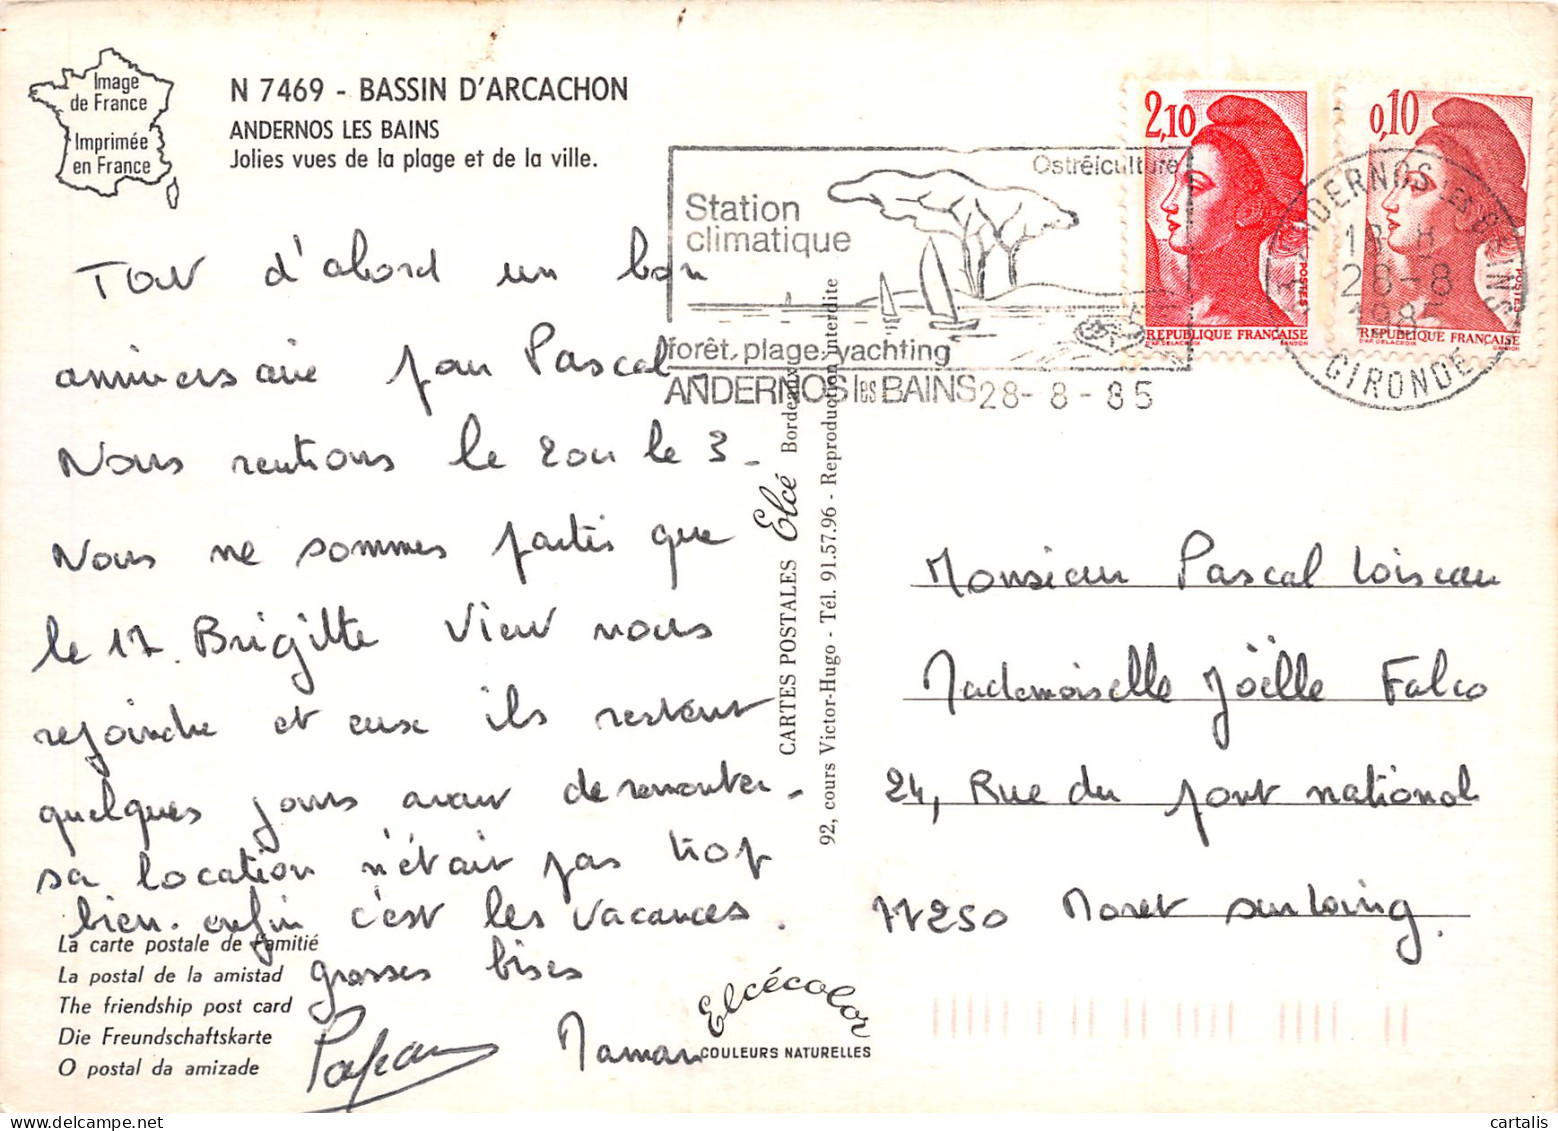 Image
de France
Imprimée
en France
N 7469 - BASSIN D'ARCACHON
ANDERNOS LES BAINS
Jolies vues de la plage et de la ville.
Tout d'abord un bon
anniversaire pour Pascal -
Nous rentrons le 2 ou le 3 -
Nous ne sommes partis que
le 17. Brigitte vient nous
rejoindre et eux ils restent
quelques jours avant de remonter -
sa location n'était pas trop
bien. enfin c'est les vacances.
grosses bises
Maman
La carte postale de l'amitié
La postal de la amistad
The friendship post card
Die Freundschaftskarte
O postal da amizade
Elcécolor
COULEURS NATURELLES
CARTES POSTALES Elcé Bordeaux
92, cours Victor-Hugo - Tél. 91.57.96 - Reproduction interdite
Ostréiculture
Station
climatique
forêt, plage, yachting
ANDERNOS les BAINS 28-8-85
2,10
POSTES
REPUBLIQUE FRANÇAISE
D'AP. DELACROIX GANDON
0,10
POSTES
REPUBLIQUE FRANÇAISE
D'AP. DELACROIX GANDON
ANDERNOS LES BAINS
28-8
GIRONDE
Monsieur Pascal Loiseau
Mademoiselle Joëlle Falco
24, Rue du pont national
77250 Moret sur Loing.
cartalis